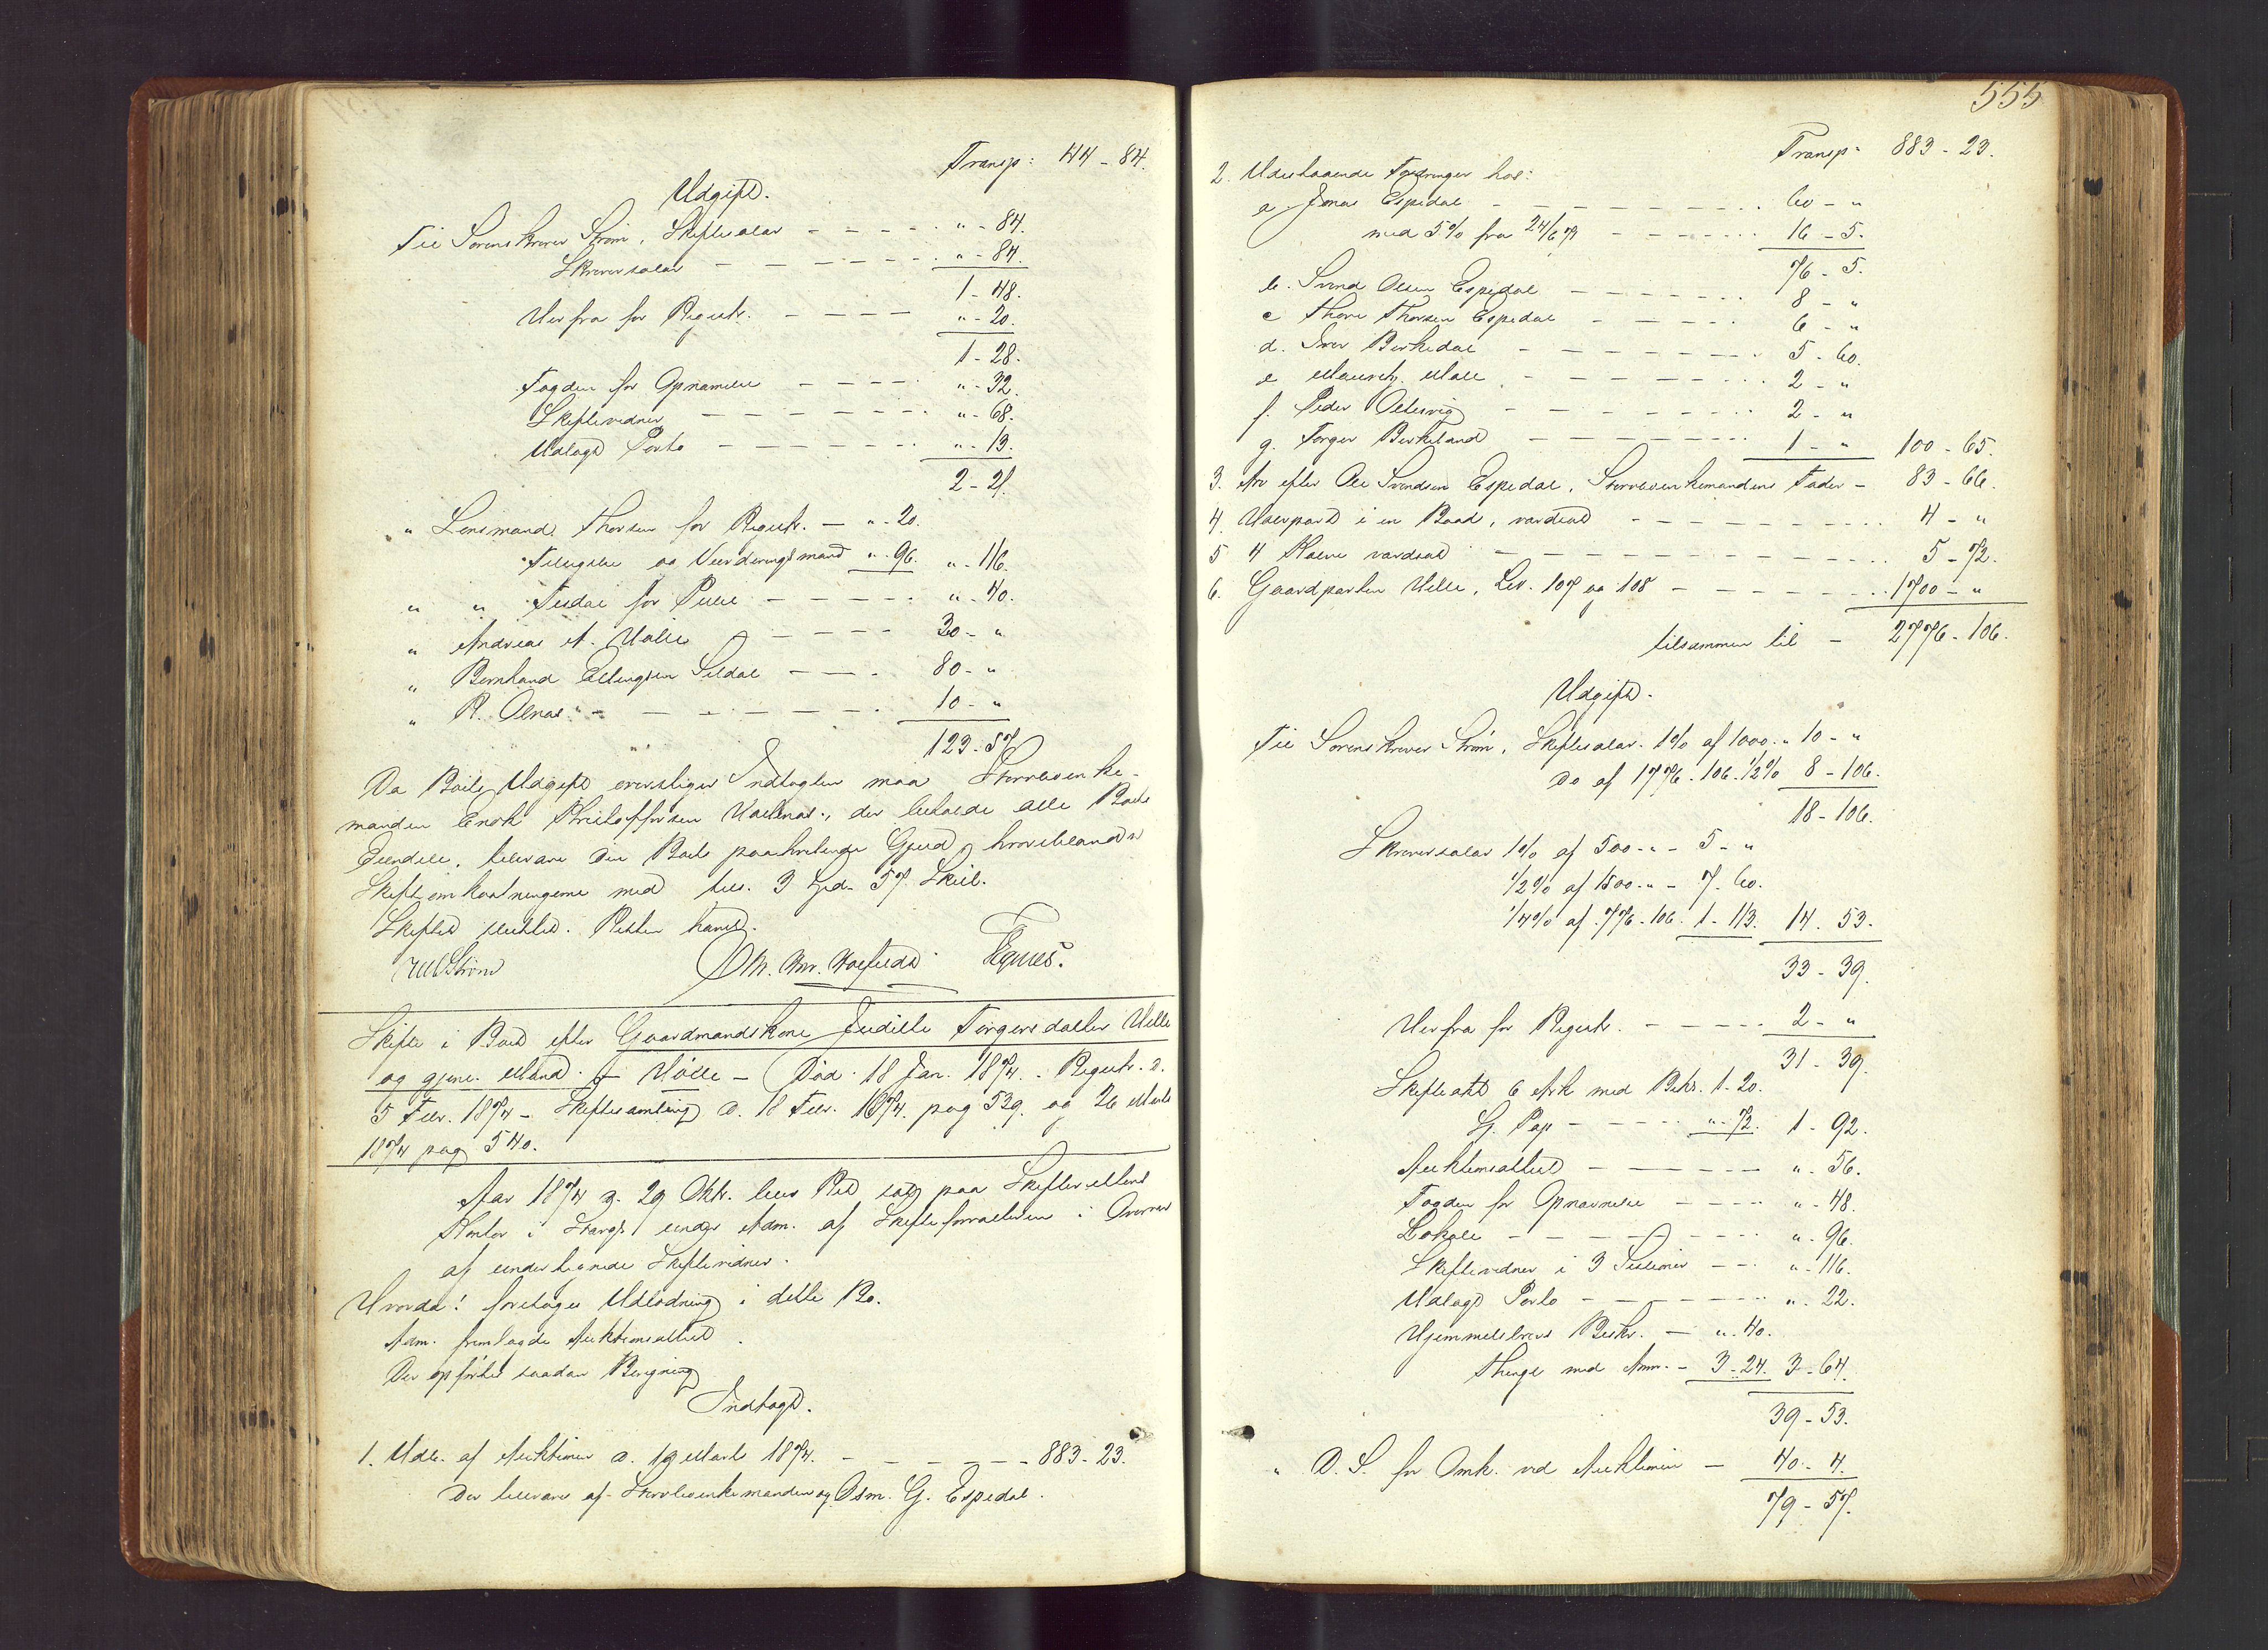 Transp: 44 - 84.
Udgift.
Til Sorenskriver Strøm, Skiftesalar - - - - - " - 84.
Skriversalar - - - - - " - 84.
1 - 48.
Herfra for Registr. - - - - " - 20.
1 - 28.
Fogden for Opnævnelse - - - - " - 32.
Skiftevidner - - - - - " - 68.
Udlagt Porto - - - - - " - 13.
2 - 21.
" Lensmand Thorsen for Registr. - " - 20.
Tilsigelse og Vurderingsmænd " - 96. " - 116.
" " Tisdal for Pleie - - - - - " - 40.
" Andreas A. Valle - - - - 30 - "
" Bernhand Ellingsen Sildal - - - 80 - "
" R. Olnas. - - - - - - - 10 - "
123 - 57
Da Boets Udgift overstiger Indtægten maa Sterbvenke-
manden Enok Kristoffersen Valknas, der beholdt alle Boets
Eiendele, tilsvare den Boets paahvilende Gjæld, hvoriblandt
Skifteomkostningerne med tils. 3 Spd. 57 Skill.
Skiftet sluttet. Retten hævet.
Strøm
555
Skifte i Boet efter Gaardmandskone Judithe Torgersdatter Helle
og gjenl. Mand. f Hølle - Død 18 Jan. 1874. - Registr. d.
5 Febr. 1874 - Skiftesamling d. 18 Febr. 1874. pag 539. og 26 Marts
1874 pag 540.
Aar 1874 d. 29 Oktr. blev Ret sat paa Skifterettens
Kontor i Stavgr. under Adm. af Skifteforvalteren i Overvær
af undertegnede Skiftevidner.
Hvorda! foretoges Udlodning i dette Bo.
Adm. fremlagde Auktionsattest.
Der opførtes saadan Beregning
Indtægt.
1. Udb. af Auktionen d. 19 Marts 1874. - - - - - 883 - 23.
Der tilsvares af Sterbvenkemanden og Osm. G. Espedal.
Transp. 883 - 23.
2. Udestaaende Fordringer hos:
a. Jonas Espedal - - - - - - 60 - "
med 5% fra 24/6 71 - - - - 16 - 5.
76 - 5.
b. Svend Olsen Espedal - - - - - 8 - "
c Thore Thorsen Espedal - - - - - 6 - "
d. Iver Birkedal - - - - - - 5 - 60.
e Mauritz Male - - - - - - 2 - "
f. Peder Oltesvig - - - - - - 2 - "
g. Torger Birkeland - - - - - 1 - " 100 - 65.
3. Arv efter Ole Svendsen Espedal, Sterbvenkemandens Fader - 83 - 66.
4. Halvpart i en Baad, værdsat - - - - - - 4 - "
5 4 Kalve værdsat - - - - - - - 5 - 72.
6. Gaardparten Helle, Lbr. 107 og 108 - - - - - 1700 - "
tilsammen til - 2776 - 106.
Udgift.
Til Sorenskriver Strøm, Skiftesalar. 1% af 1000. " 10 - "
Do af 1776 - 106. 1/2% 8 - 106.
18 - 106.
Skriversalar 1% af 500 - " - 5 - "
1/2% af 1500. " - 7 - 60.
1/4% af 776 - 106. 1 - 113. 14 - 53.
33 - 39.
Herfra for Registr. - - - - 2 - "
31 - 39.
Skifteakt 6 Ark med Bekr. 1 - 20.
St. Pap - - - - " - 72. 1 - 92.
Auktionsattest - - - - - " - 56.
Fogden for Opnævnelse - - - - " - 48.
Lokale - - - - - - " - 96.
Skiftevidner i 3 Sessioner - - - " - 116.
Udlagt Porto - - - - - - " - 22.
Hjemmelsbrevs Beskr. - " - 40.
Thingl. med Anm. - 3 - 24. 3 - 64.
39 - 53.
" D. S. for Omk. ved Auktionen - 40 - 4.
79 - 57.